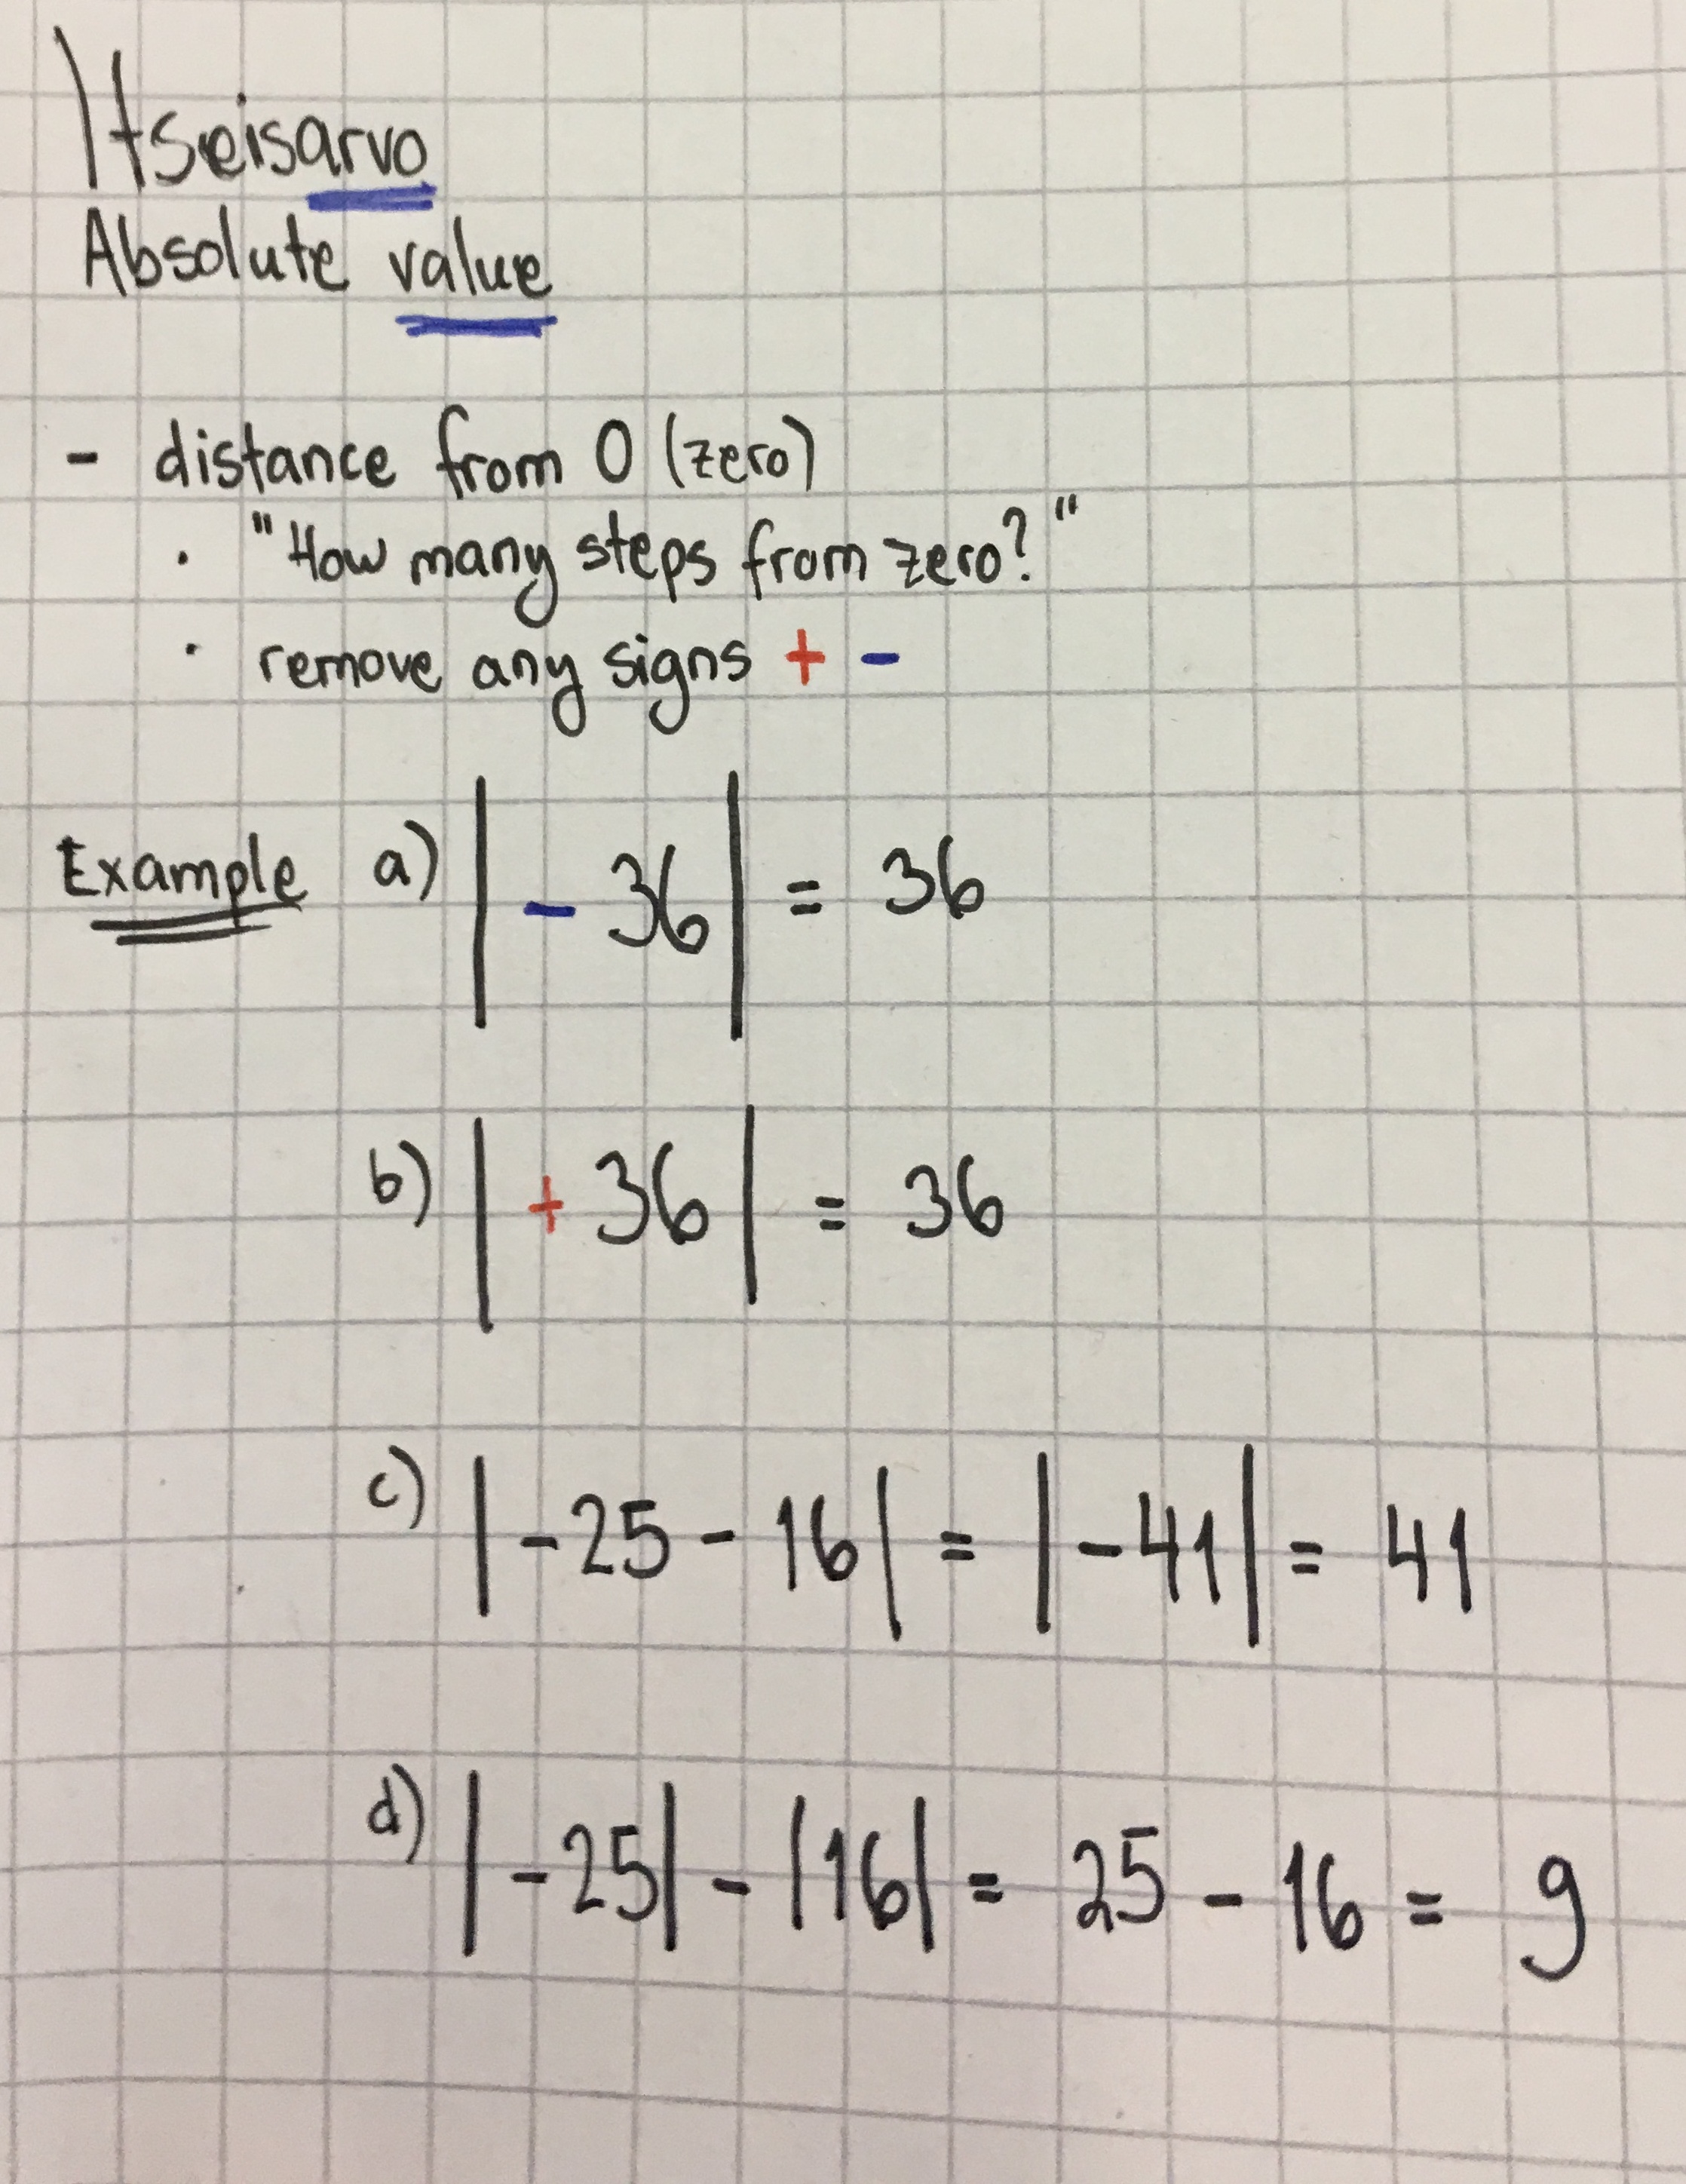 Itseisarvo
Absolute value
- distance from 0 (zero)
· "How many steps from zero?"
· remove any signs + -
Example a) |- 36| = 36
b) |+ 36| = 36
c) |-25 - 16| = |-41| = 41
d) |-25| - |16| = 25 - 16 = 9